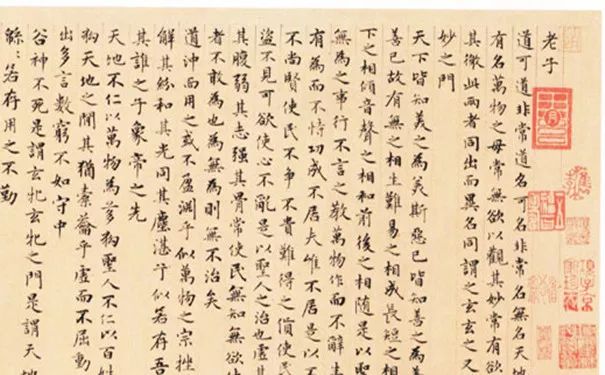 老子
道可道非常道名可名非常名無名天地
有名萬物之母常無欲以觀其妙常有欲
其徼此兩者同出而異名同謂之玄玄之又
妙之門
天下皆知美之為美斯惡已皆知善之為善
善已故有無之相生難易之相成長短之相
下之相傾音聲之相和前後之相隨是以聖
無為之事行不言之教萬物作而不辭生
有為而不恃功成不居夫惟不居是以不
不尚賢使民不爭不貴難得之貨使民
盜不見可欲使心不亂是以聖人之治也虛其
其腹弱其志强其骨常使民無知無欲使
者不敢為也為無為則無不治矣
道沖而用之或不盈淵乎似萬物之宗挫
解其紛和其光同其塵湛乎似若存吾
其誰之子象帝之先
天地不仁以萬物為芻狗聖人不仁以百姓
狗天地之間其猶橐籥乎虛而不屈動
出多言數窮不如守中
谷神不死是謂玄牝玄牝之門是謂天地
緜〻若存用之不勤